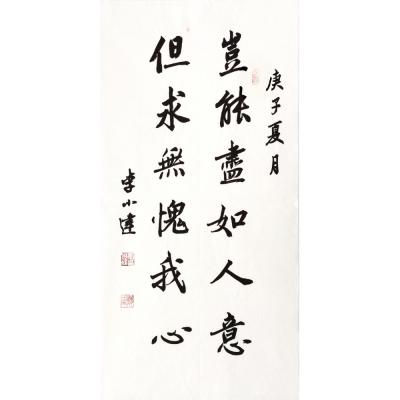 庚子夏月
豈能盡如人意
但求無愧我心
李小達